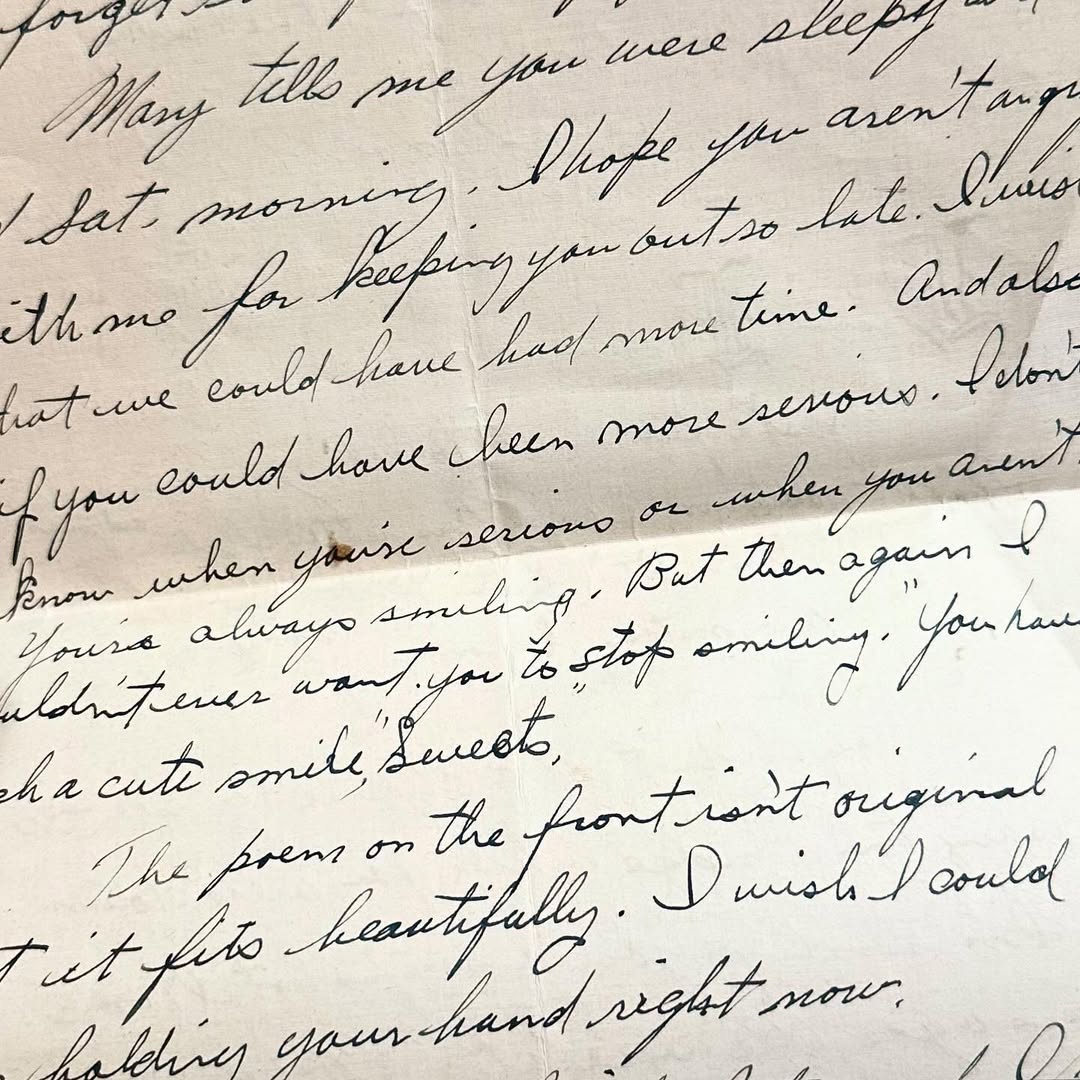 forget
Mary tells me you were sleepy
Sat. morning. I hope you aren't angry
ith me for keeping you out so late. I wis
hat we could have had more time. And also
if you could have been more serious. I don't
know when you're serious or when you aren't.
You're always smiling. But then again I
uldn't ever want you to "stop smiling." You have
ch a cute smile, "Sweets,"
The poem on the front isn't original
t it fits beautifully. I wish I could
holding your hand right now.